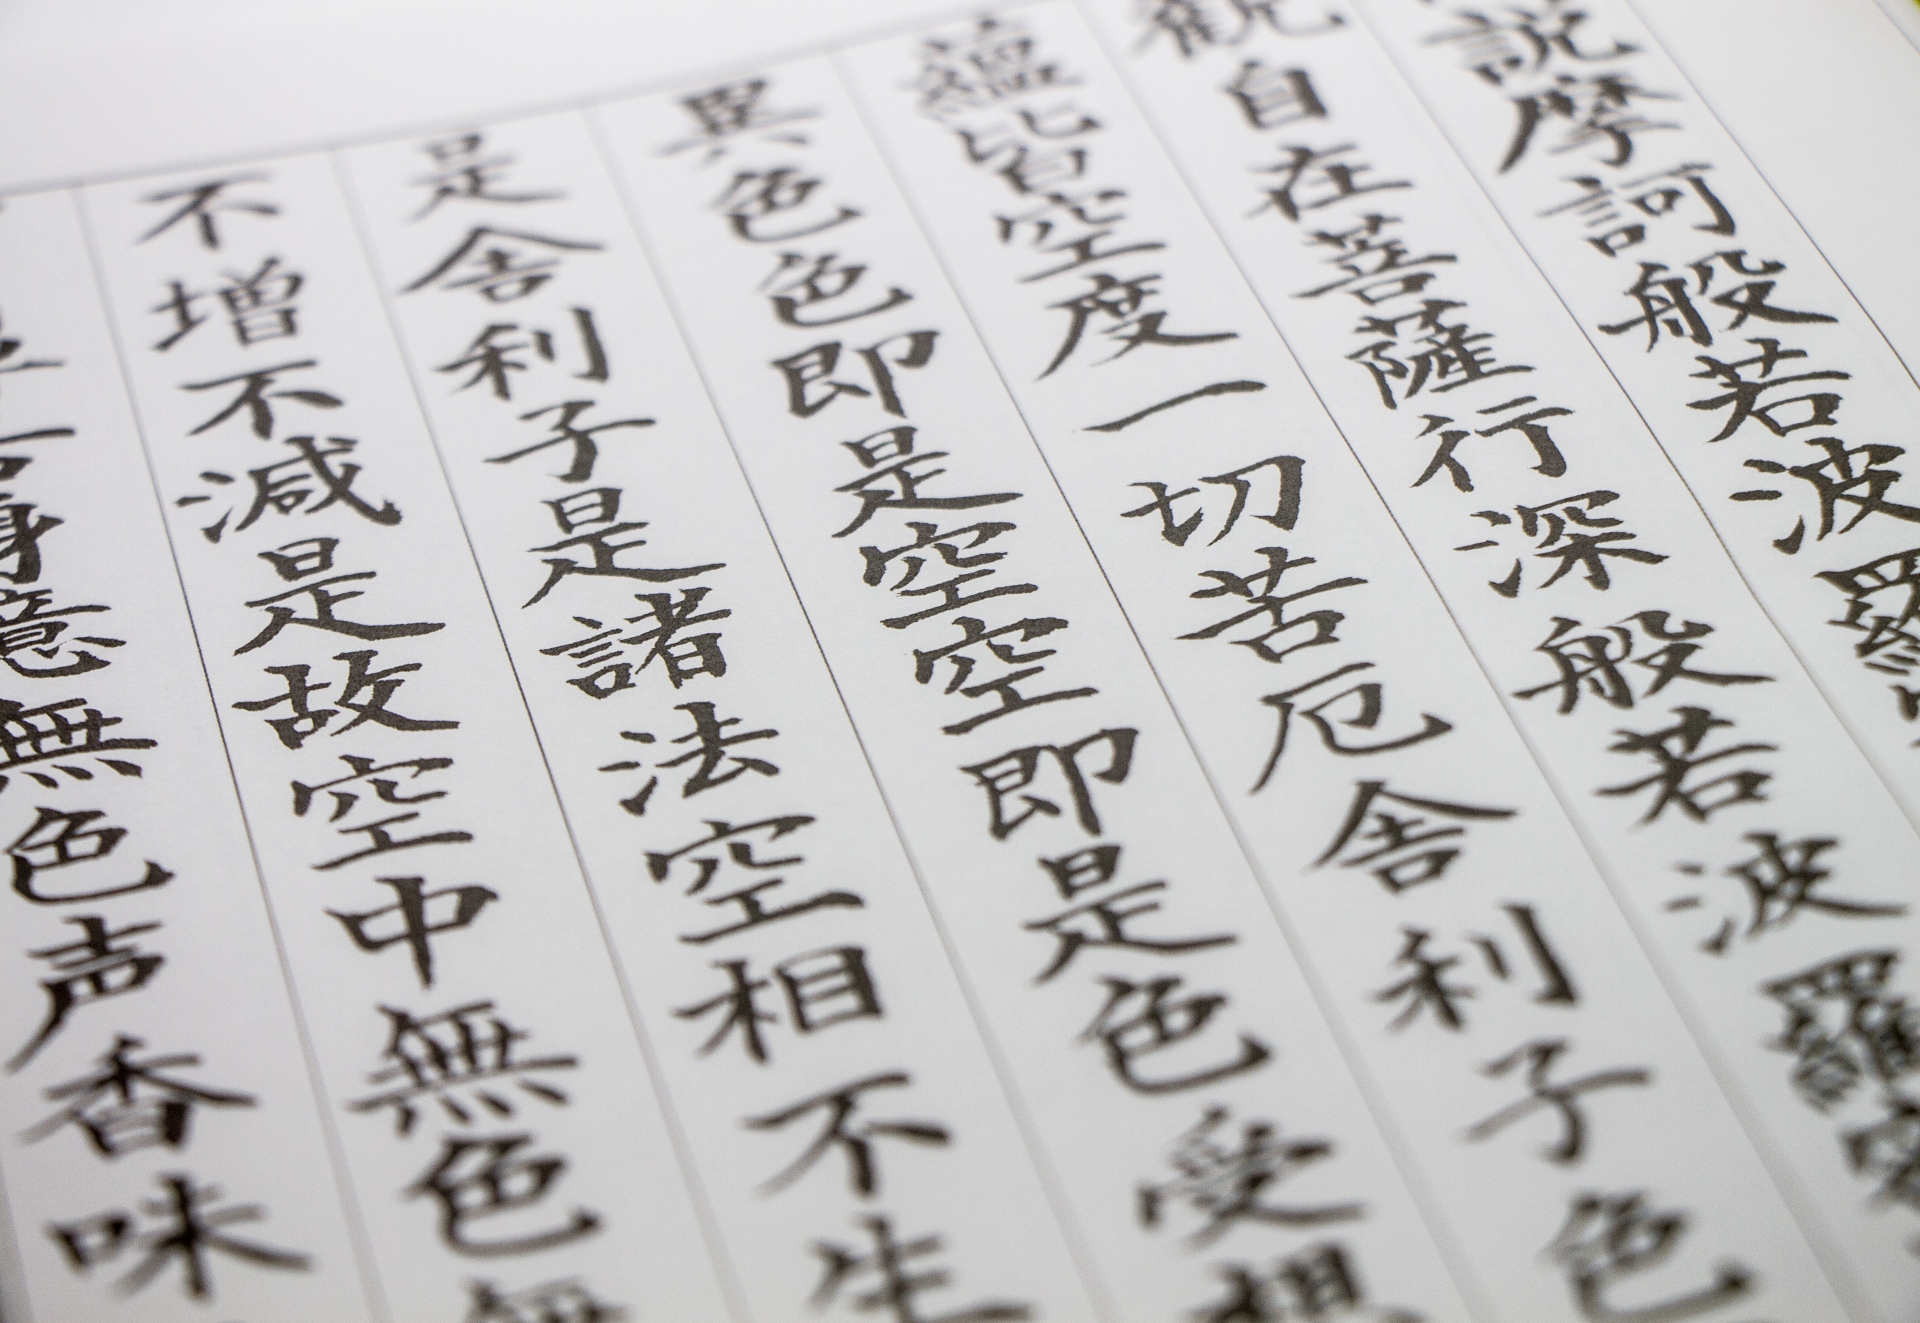 説摩訶般若波羅
観自在菩薩行深般若波羅
蘊皆空度一切苦厄舎利子色
異色色即是空空即是色受想
是舎利子是諸法空相不生
不増不減是故空中無色無
身意無色声香味